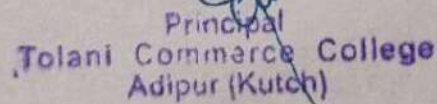 Principal
Tolani Commerce College
Adipur (Kutch)